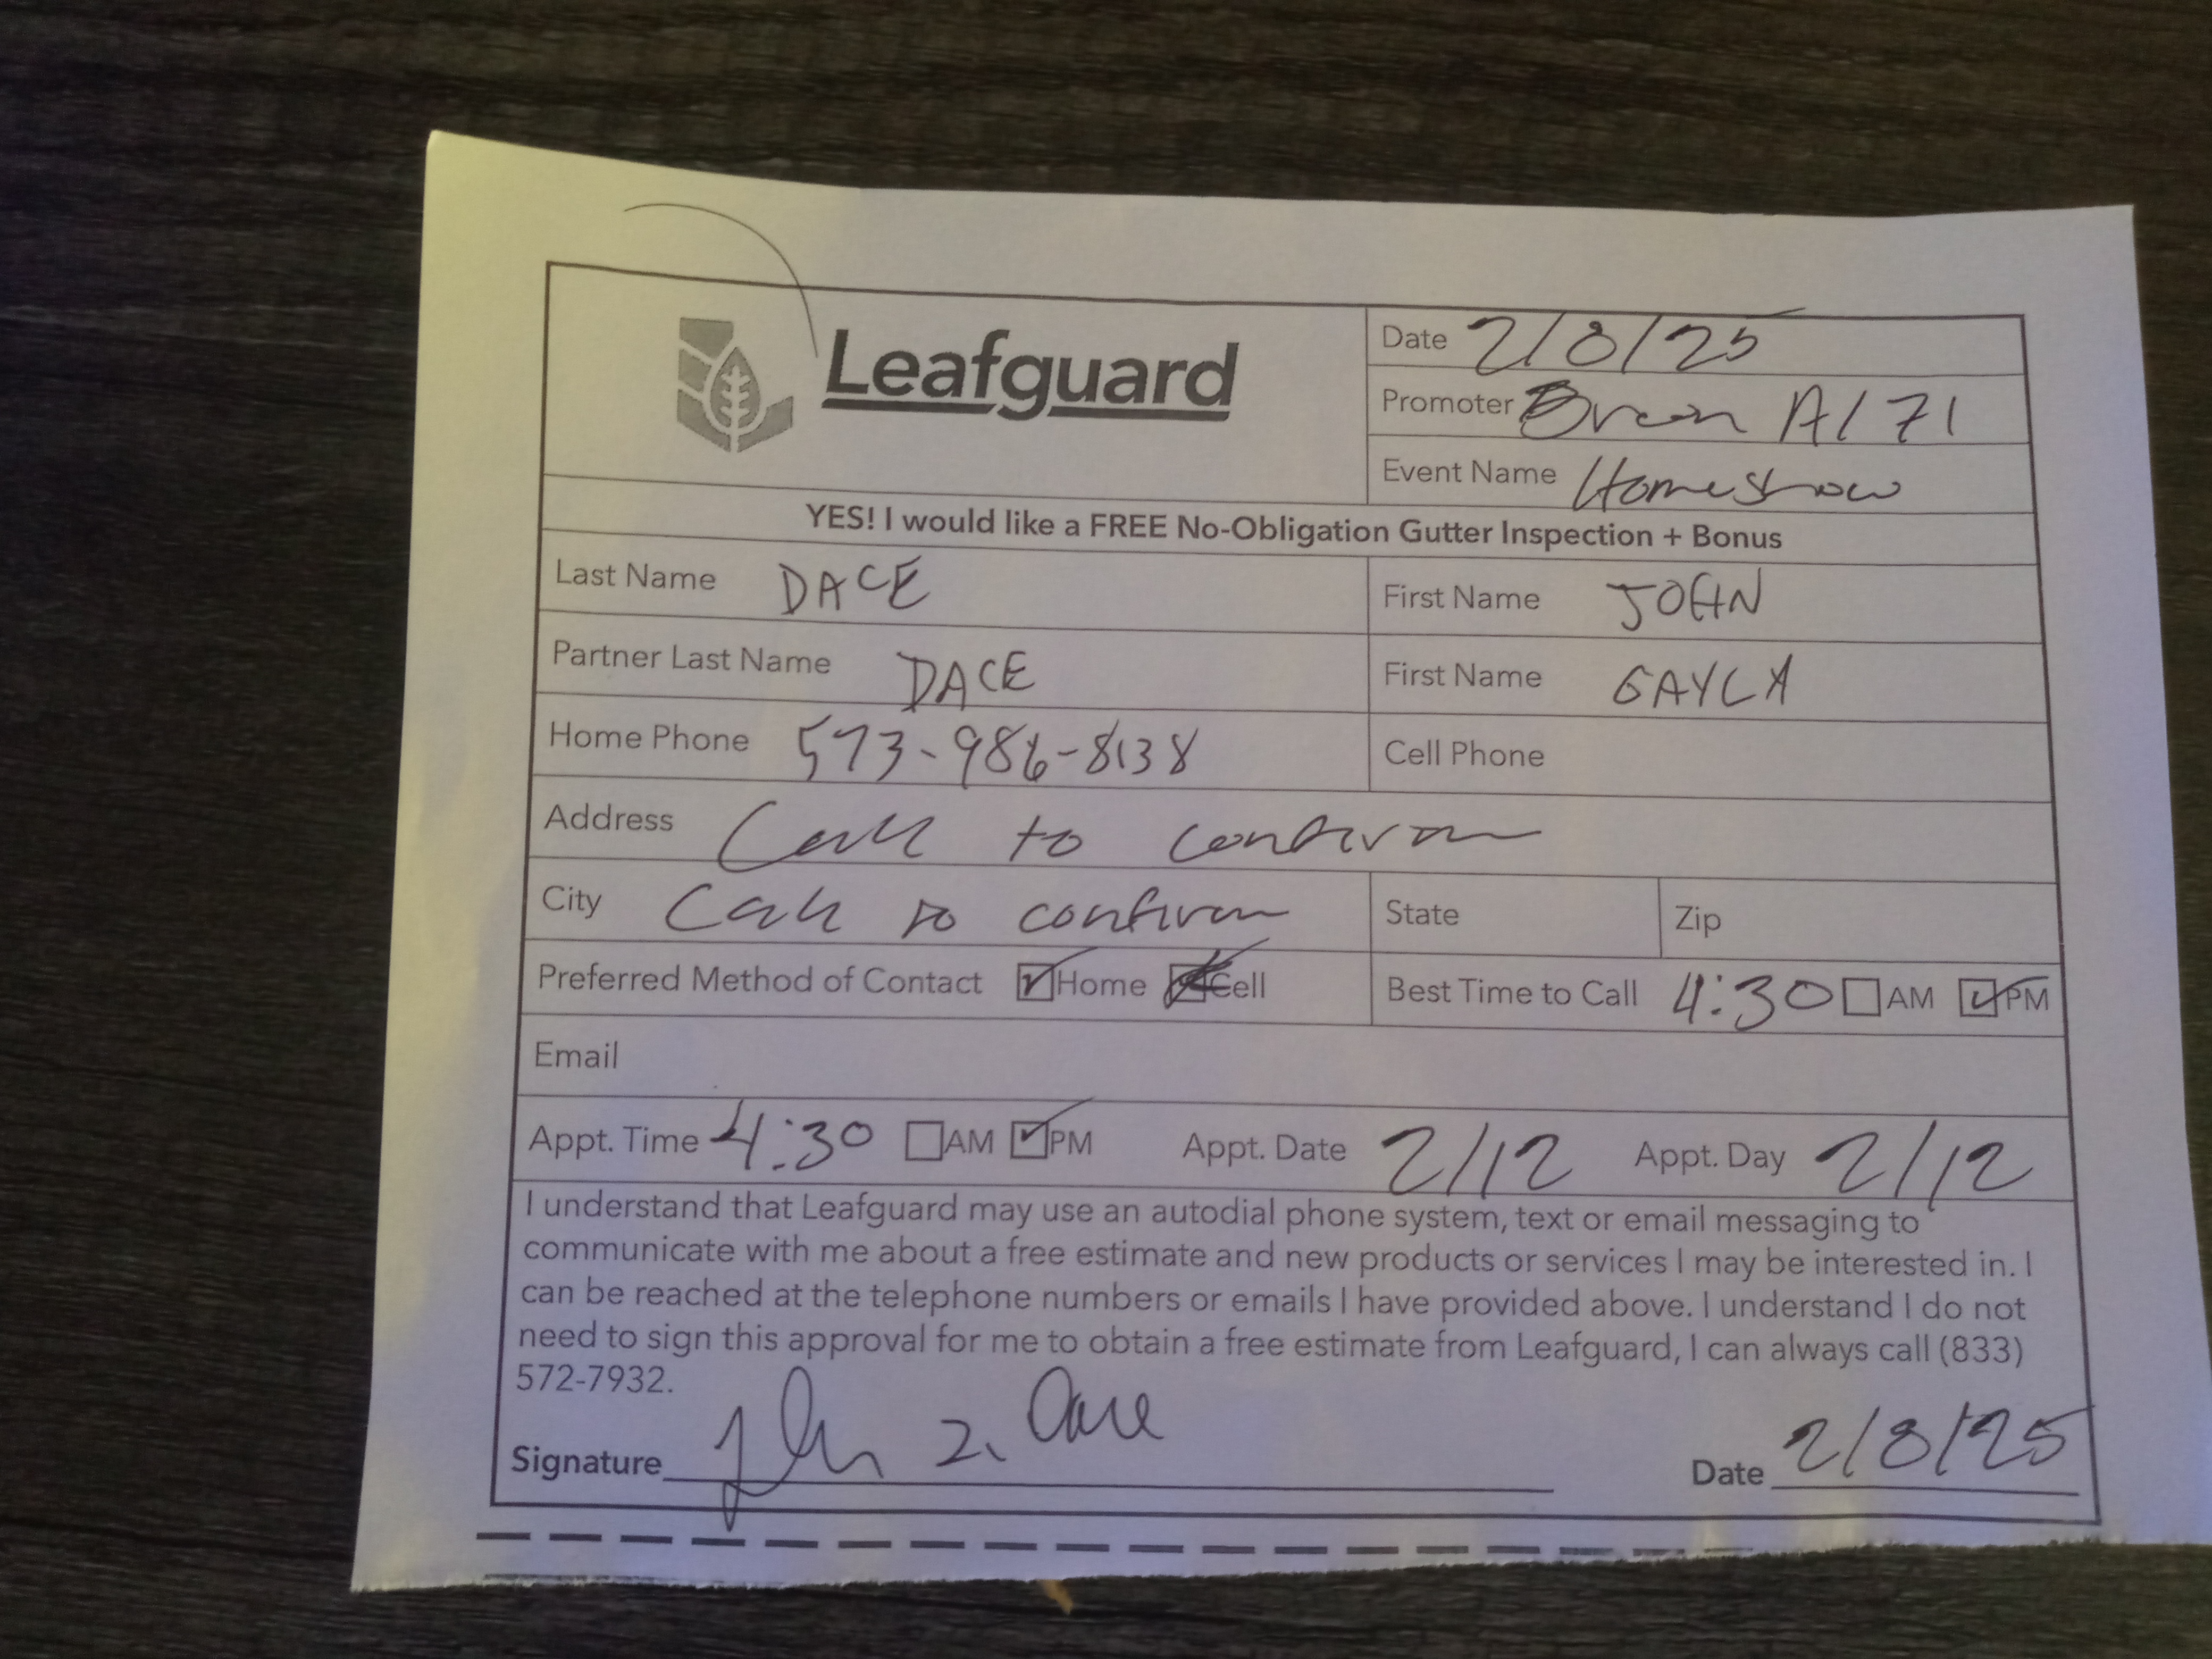 Leafguard
Date 2/8/25
Promoter A171
Event Name Homeshow
YES! I would like a FREE No-Obligation Gutter Inspection + Bonus
Last Name DACE First Name JOHN
Partner Last Name DACE First Name GAYLA
Home Phone 573-986-8138 Cell Phone
Address Call to confirm
City Call to confirm State Zip
Preferred Method of Contact Home Cell Best Time to Call 4:30 AM PM
Email
Appt. Time 4:30 AM PM Appt. Date 2/12 Appt. Day 2/12
I understand that Leafguard may use an autodial phone system, text or email messaging to
communicate with me about a free estimate and new products or services I may be interested in. I
can be reached at the telephone numbers or emails I have provided above. I understand I do not
need to sign this approval for me to obtain a free estimate from Leafguard, I can always call (833)
572-7932.
Signature John Dace Date 2/8/25